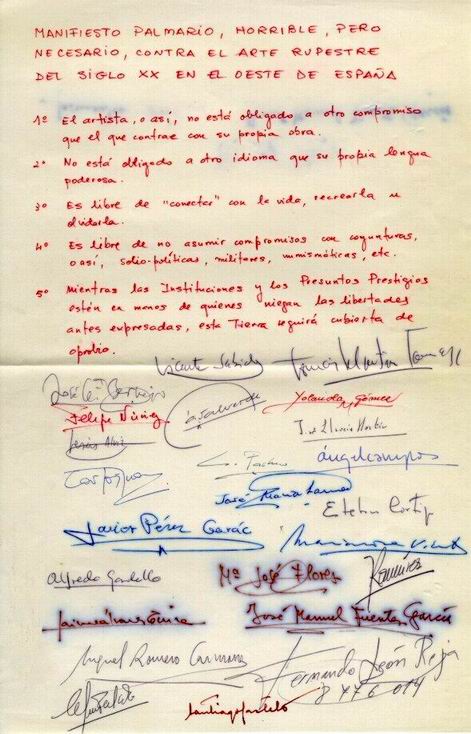 MANIFIESTO PALMARIO, HORRIBLE, PERO
NECESARIO, CONTRA EL ARTE RUPESTRE
DEL SIGLO XX EN EL OESTE DE ESPAÑA
1º El artista, o así, no está obligado a otro compromiso
que el que contrae con su propia obra.
2º No está obligado a otro idioma que su propia lengua
poderosa.
3º Es libre de "conectar" con la vida, recrearla u
olvidarla.
4º Es libre de no asumir compromisos con coyunturas,
o así, socio-políticas, militares, numismáticas, etc.
5º Mientras las Instituciones y los Presuntos Prestigios
estén en manos de quienes niegan las libertades
antes expresadas, esta Tierra seguirá cubierta de
oprobio.
Vicente Sabido
Felipe Núñez
Yolanda Gómez
ángel campos
José María
Esteban Cortijo
Javier Pérez
Alfredo Gordillo
Mª José Flores
Ramírez
José Manuel Fuentes García
Miguel Romero Carmona
Fernando León Rejas
8 776 014
Santiago